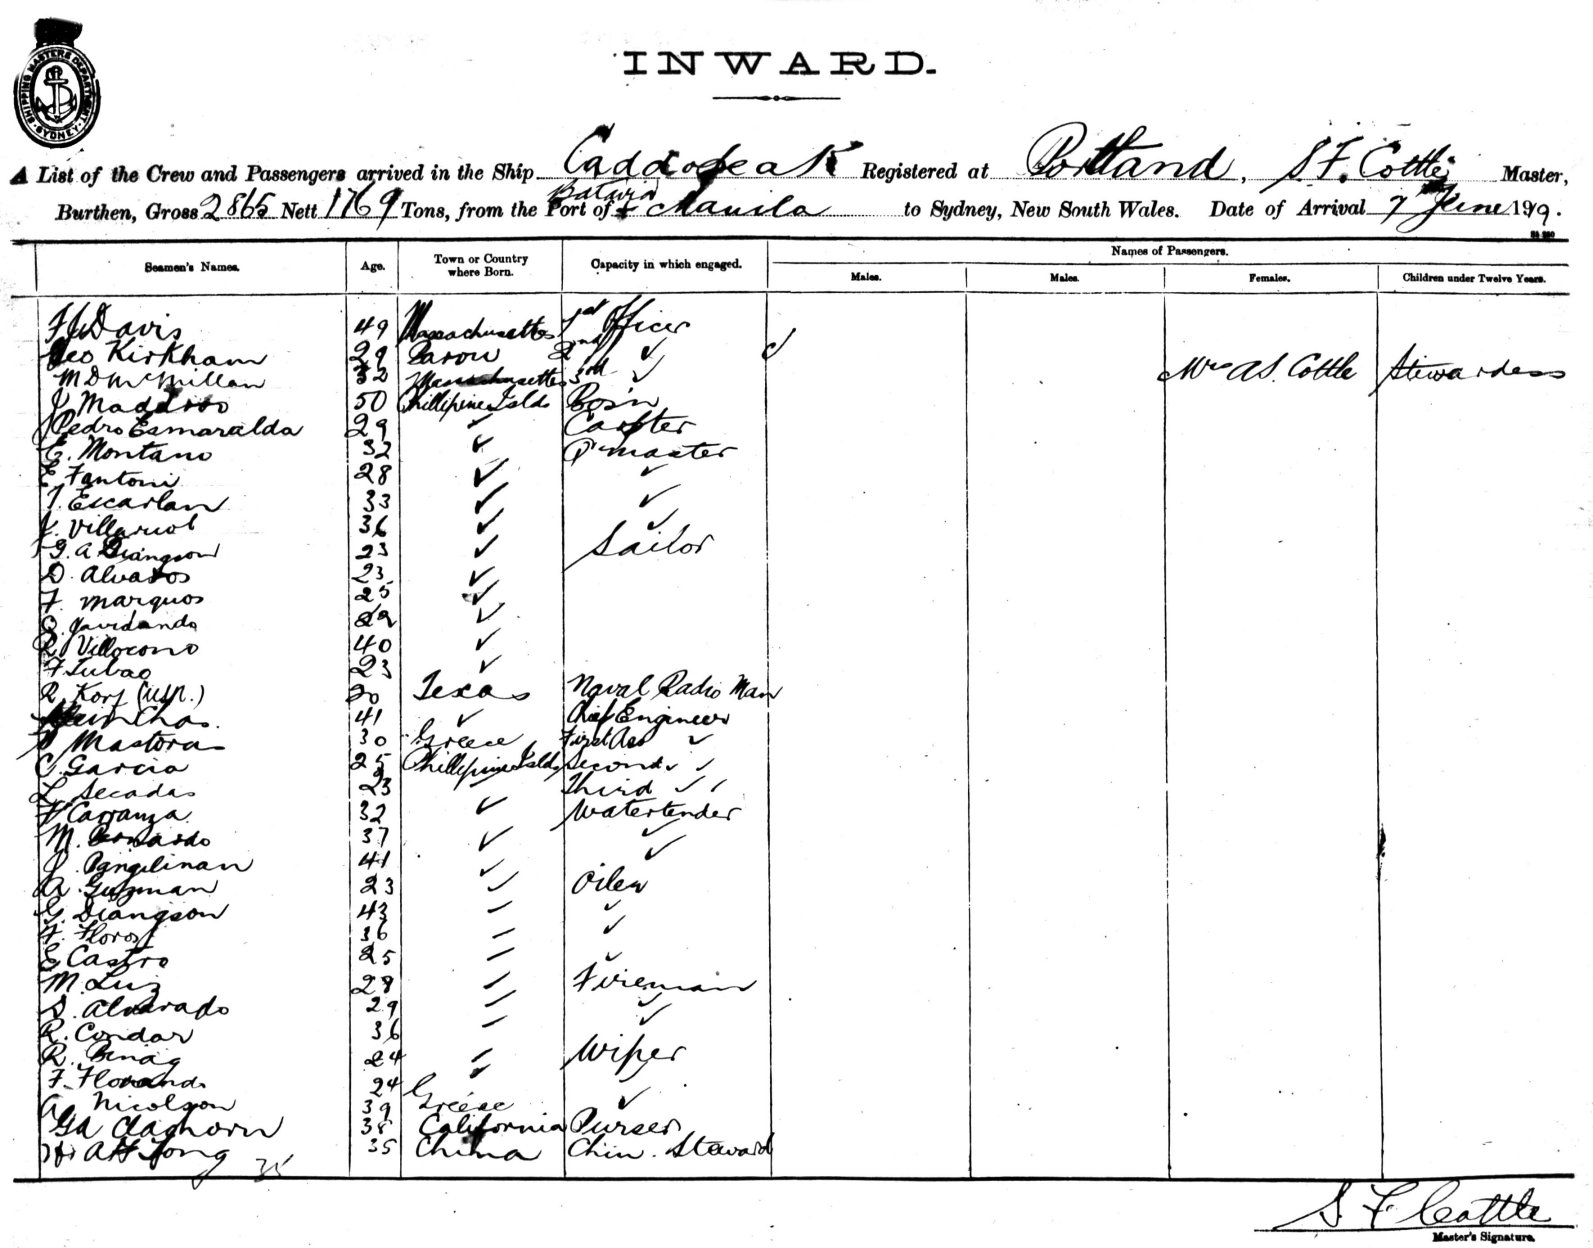 SHIPPING MASTERS DEPARTMENT SYDNEY
INWARD.
A List of the Crew and Passengers arrived in the Ship Caddopeak Registered at Portland, S F. Cottle Master,
Burthen, Gross 2865 Nett 1769 Tons, from the Port of Manila to Sydney, New South Wales. Date of Arrival 7 June 1919.
Seamen's Names. Age. Town or Country where Born. Capacity in which engaged. Names of Passengers.
Males. Males. Females. Children under Twelve Years.
F J Davis 49 Massachusettes 1st Officer
Geo Kirkham 29 2nd ✓
M D McMillan 32 Massachusettes 3rd ✓ Mrs A S. Cottle Stewardess
J Maddroo 50 Phillipine Islds Bos'n
Pedro Esmaralda 29 ✓ Carpter
E. Montano 32 ✓ Q'master
E Fantoni 28 ✓ ✓
T. Escarlan 33 ✓ ✓
J. Villaruol 36 ✓ ✓
G. A Diangson 23 ✓ Sailor
D. Alvaros 23 ✓
F. Marquos 25 ✓
✓
R. Villocono 40 ✓
F Tubao 23 ✓
R. Korf (USN.) 20 Texas Naval Radio Man
Chas. 41 ✓ Chief Engineer
Mastoras 30 Greece First Ass ✓
C. Garcia 25 Phillipine Islds Second ✓ ✓
L. Secadas 23 Third ✓ ✓
F Carranza 32 ✓ Watertender
M. Bernardo 37 ✓ ✓
J. Pangilinan 41 ✓ ✓
A. Guzman 23 ✓ Oiler
G. Diangson 43 ✓
F. Floros 36 ✓
E Castro 25 ✓
M. Luiz 28 Fireman
S. Alvarado 29 ✓
R. Condor 36 ✓
R. Binag 24 Wiper
F. Florando 24
A. Nicolson 39 Greece ✓
G A Claghorn 38 California Purser
Ah Fong 35 China Chin. Steward
35
S. F. Cottle
Master's Signature.